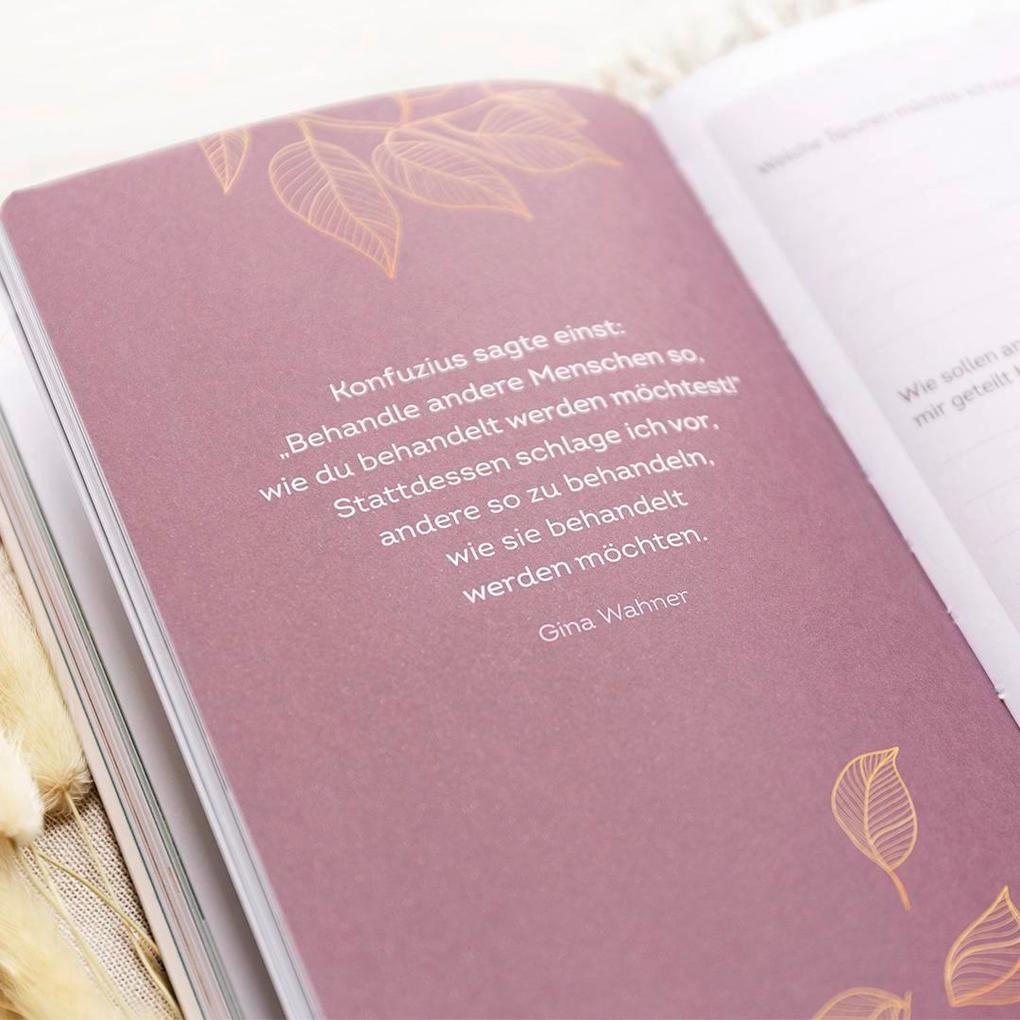 Konfuzius sagte einst:
„Behandle andere Menschen so,
wie du behandelt werden möchtest!"
Stattdessen schlage ich vor,
andere so zu behandeln,
wie sie behandelt
werden möchten.
Gina Wahner
Welche Spuren möchte ich
Wie sollen
mir geteilt